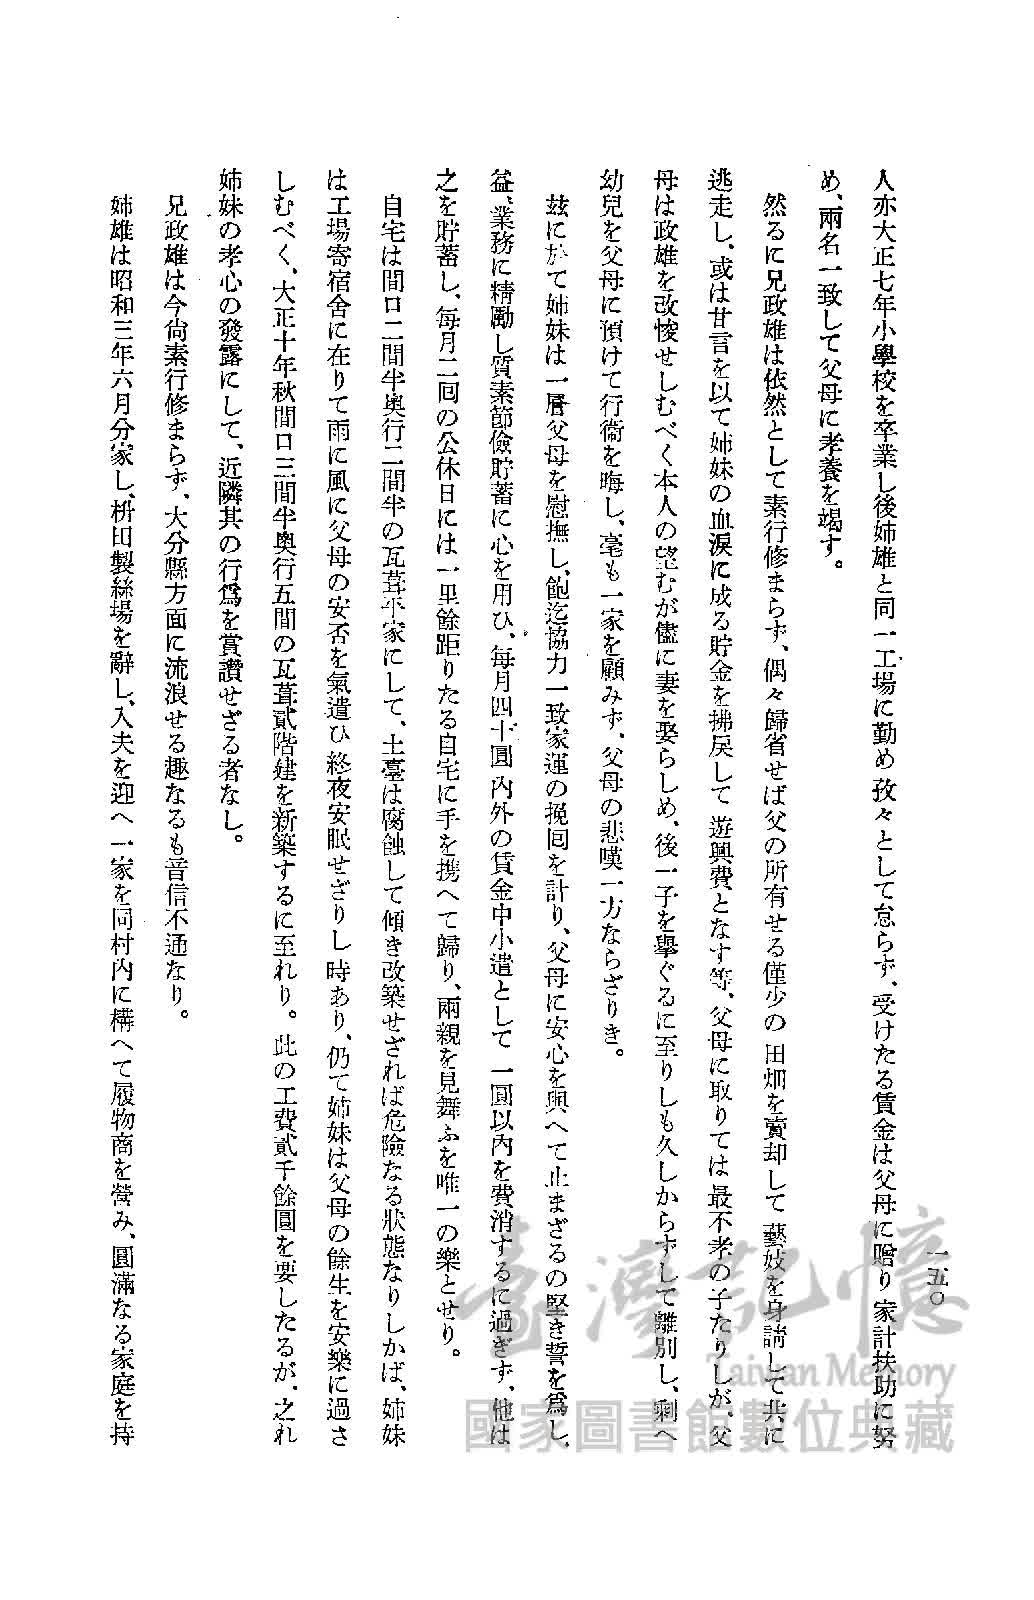 一五〇
人亦大正七年小學校を卒業し後姉雄と同一工場に勤め孜々として怠らず、受けたる賃金は父母に贈り家計扶助に努
め、兩名一致して父母に孝養を竭す。
然るに兄政雄は依然として素行修まらず、偶々歸省せば父の所有せる僅少の田畑を賣却して藝妓を身請して共に
逃走し、或は甘言を以て姉妹の血淚に成る貯金を拂戾して遊興費となす等、父母に取りては最不孝の子たりしが、父
母は政雄を改悛せしむべく本人の望むが儘に妻を娶らしめ、後一子を擧ぐるに至りしも久しからずして離別し、剩へ
幼兒を父母に預けて行衞を晦し、毫も一家を顧みず、父母の悲嘆一方ならざりき。
玆に於て姉妹は一層父母を慰撫し、飽迄協力一致家運の挽囘を計り、父母に安心を與へて止まざるの堅き誓を爲し、
益、業務に精勵し質素節儉貯蓄に心を用ひ、每月四十圓內外の賃金中小遣として一圓以內を費消するに過ぎず、他は
之を貯蓄し、每月二囘の公休日には一里餘距りたる自宅に手を携へて歸り、兩親を見舞ふを唯一の樂とせり。
自宅は間口二間半奧行二間半の瓦葺平家にして、土臺は腐蝕して傾き改築せざれば危險なる狀態なりしかば、姉妹
は工場寄宿舍に在りて雨に風に父母の安否を氣遣ひ終夜安眠せざりし時あり、仍て姉妹は父母の餘生を安樂に過さ
しむべく、大正十年秋間口三間半奧行五間の瓦葺貳階建を新築するに至れり。此の工費貳千餘圓を要したるが、之れ
姉妹の孝心の發露にして、近隣其の行爲を賞讚せざる者なし。
兄政雄は今尙素行修まらず、大分縣方面に流浪せる趣なるも音信不通なり。
姉雄は昭和三年六月分家し、枡田製絲場を辭し、入夫を迎へ一家を同村內に構へて履物商を營み、圓滿なる家庭を持
臺灣記憶
Taiwan Memory
國家圖書館數位典藏